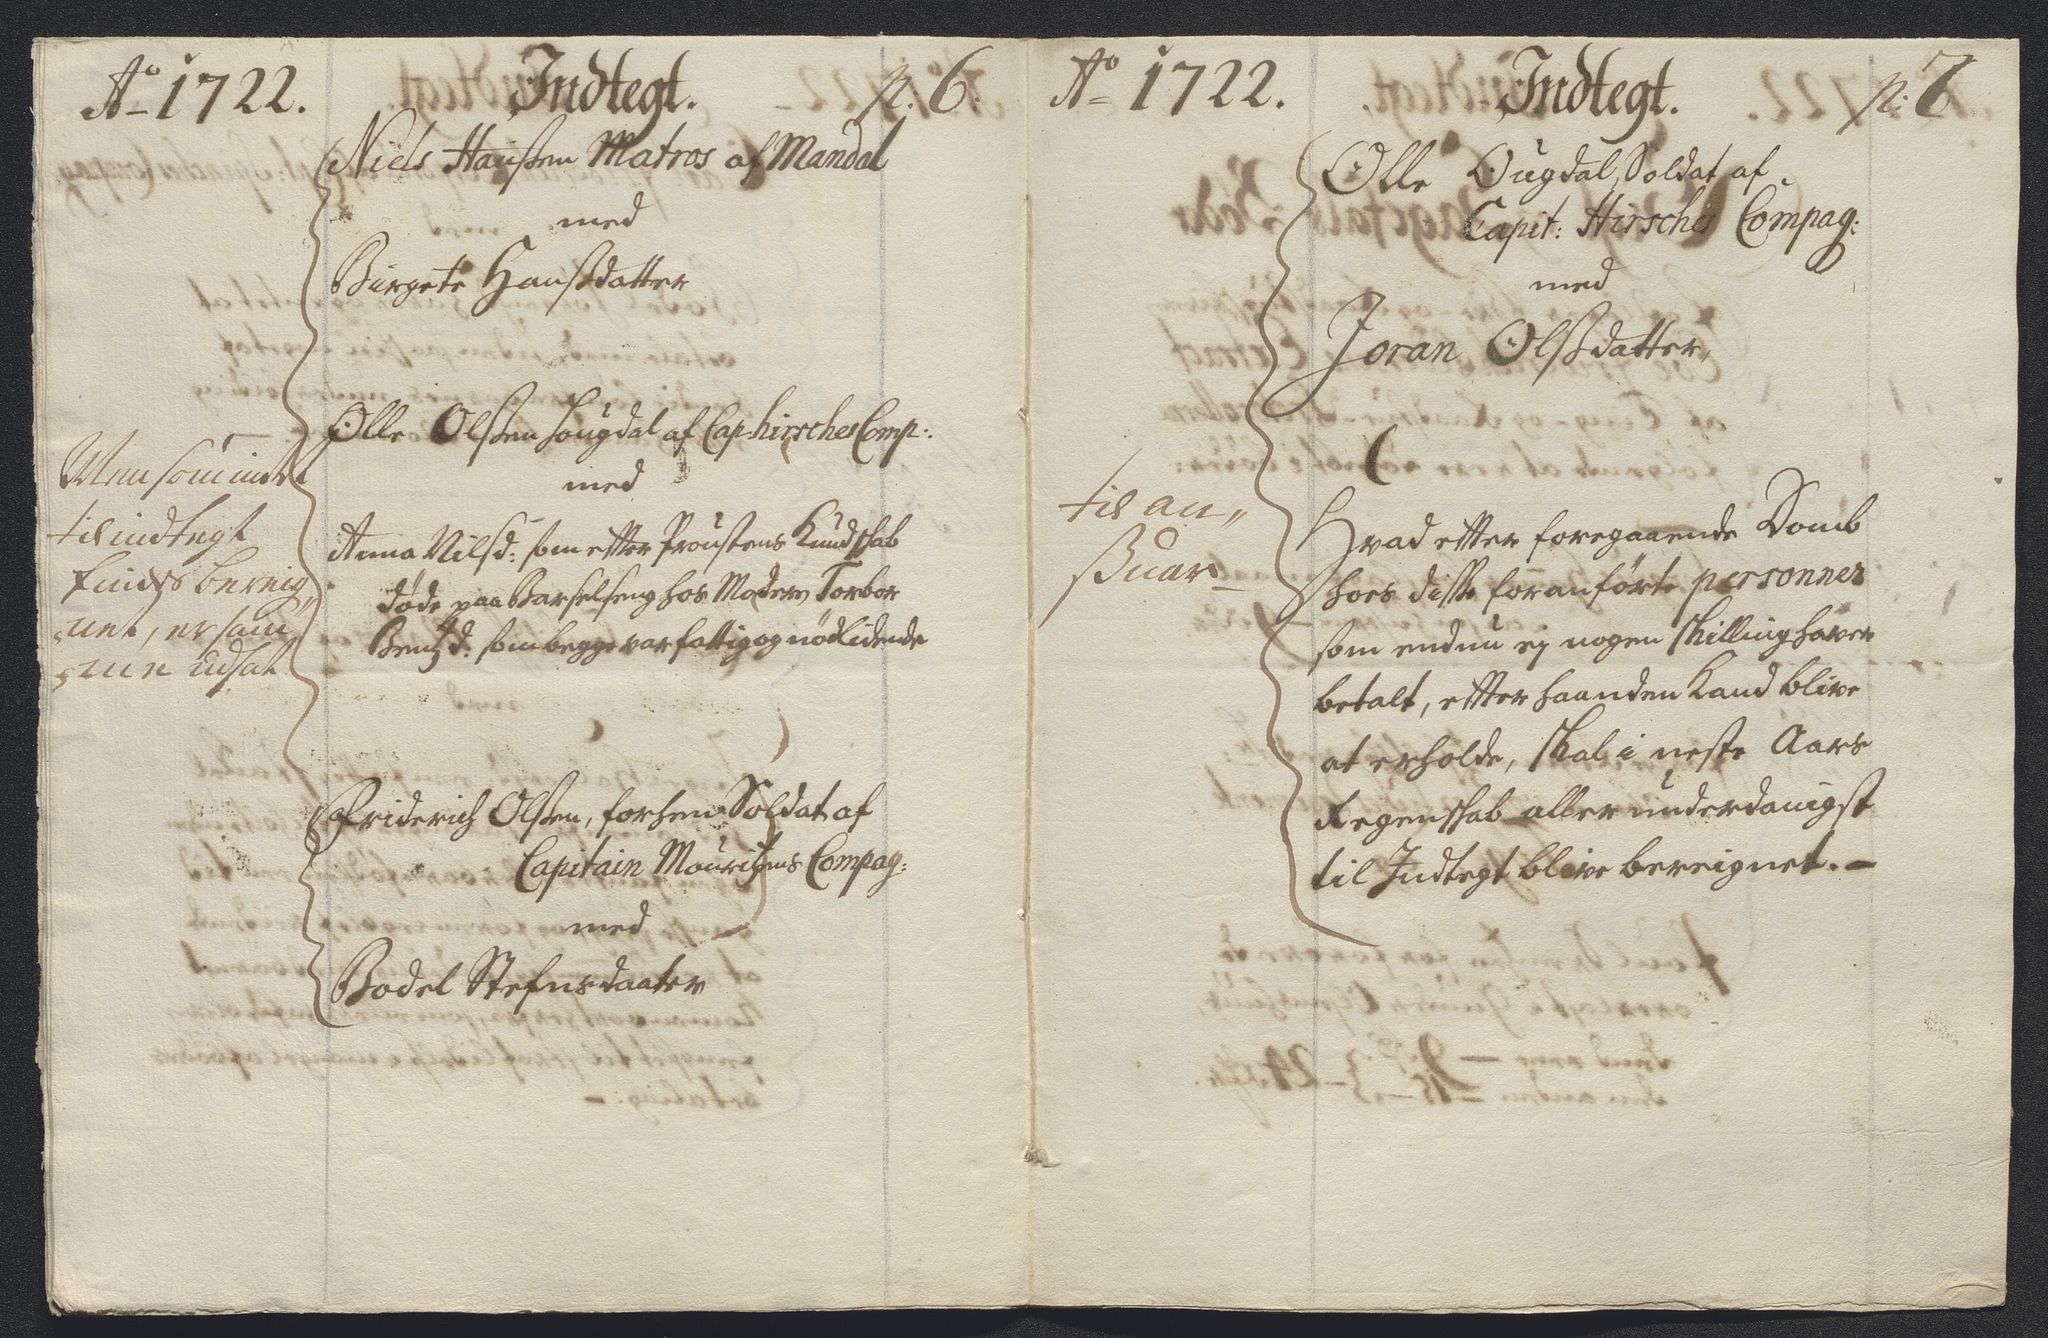 Aº 1722.
Indtegt.
p. 6.
Niels Hanßen Matros af Mandal
med
Birgete Hanßdatter
Olle Olßen Hougdal af Cap. hirsches Comp:
med
Anna Nilsd: som etter Proustens Kundskab
døde paa Barselseng hos Moderen Torbor
Bentzd: som begge var fattig og nødlidende
Friderich Olßen, forhen Soldat af
Capitain Mouritzens Compag:
med
Bodel Stefensdaater
Men som intet
til indtegt
findes bereig,,
net, er samme
udsat
Aº 1722.
Indtegt.
p: 7
Olle Ougdal, Soldat af
Capit: Hirsches Compag:
med
Joran Olßdatter,
Hvad etter foregaaende Domb
hoes disse foranførte personner
som endnu ej nogen skilling haver
betalt, etter haanden Kand blive
at erholde, skal i neste Aars
Regenskab allerunderdanigst
til Indtegt blive bereignet. –
til an,,
Suar